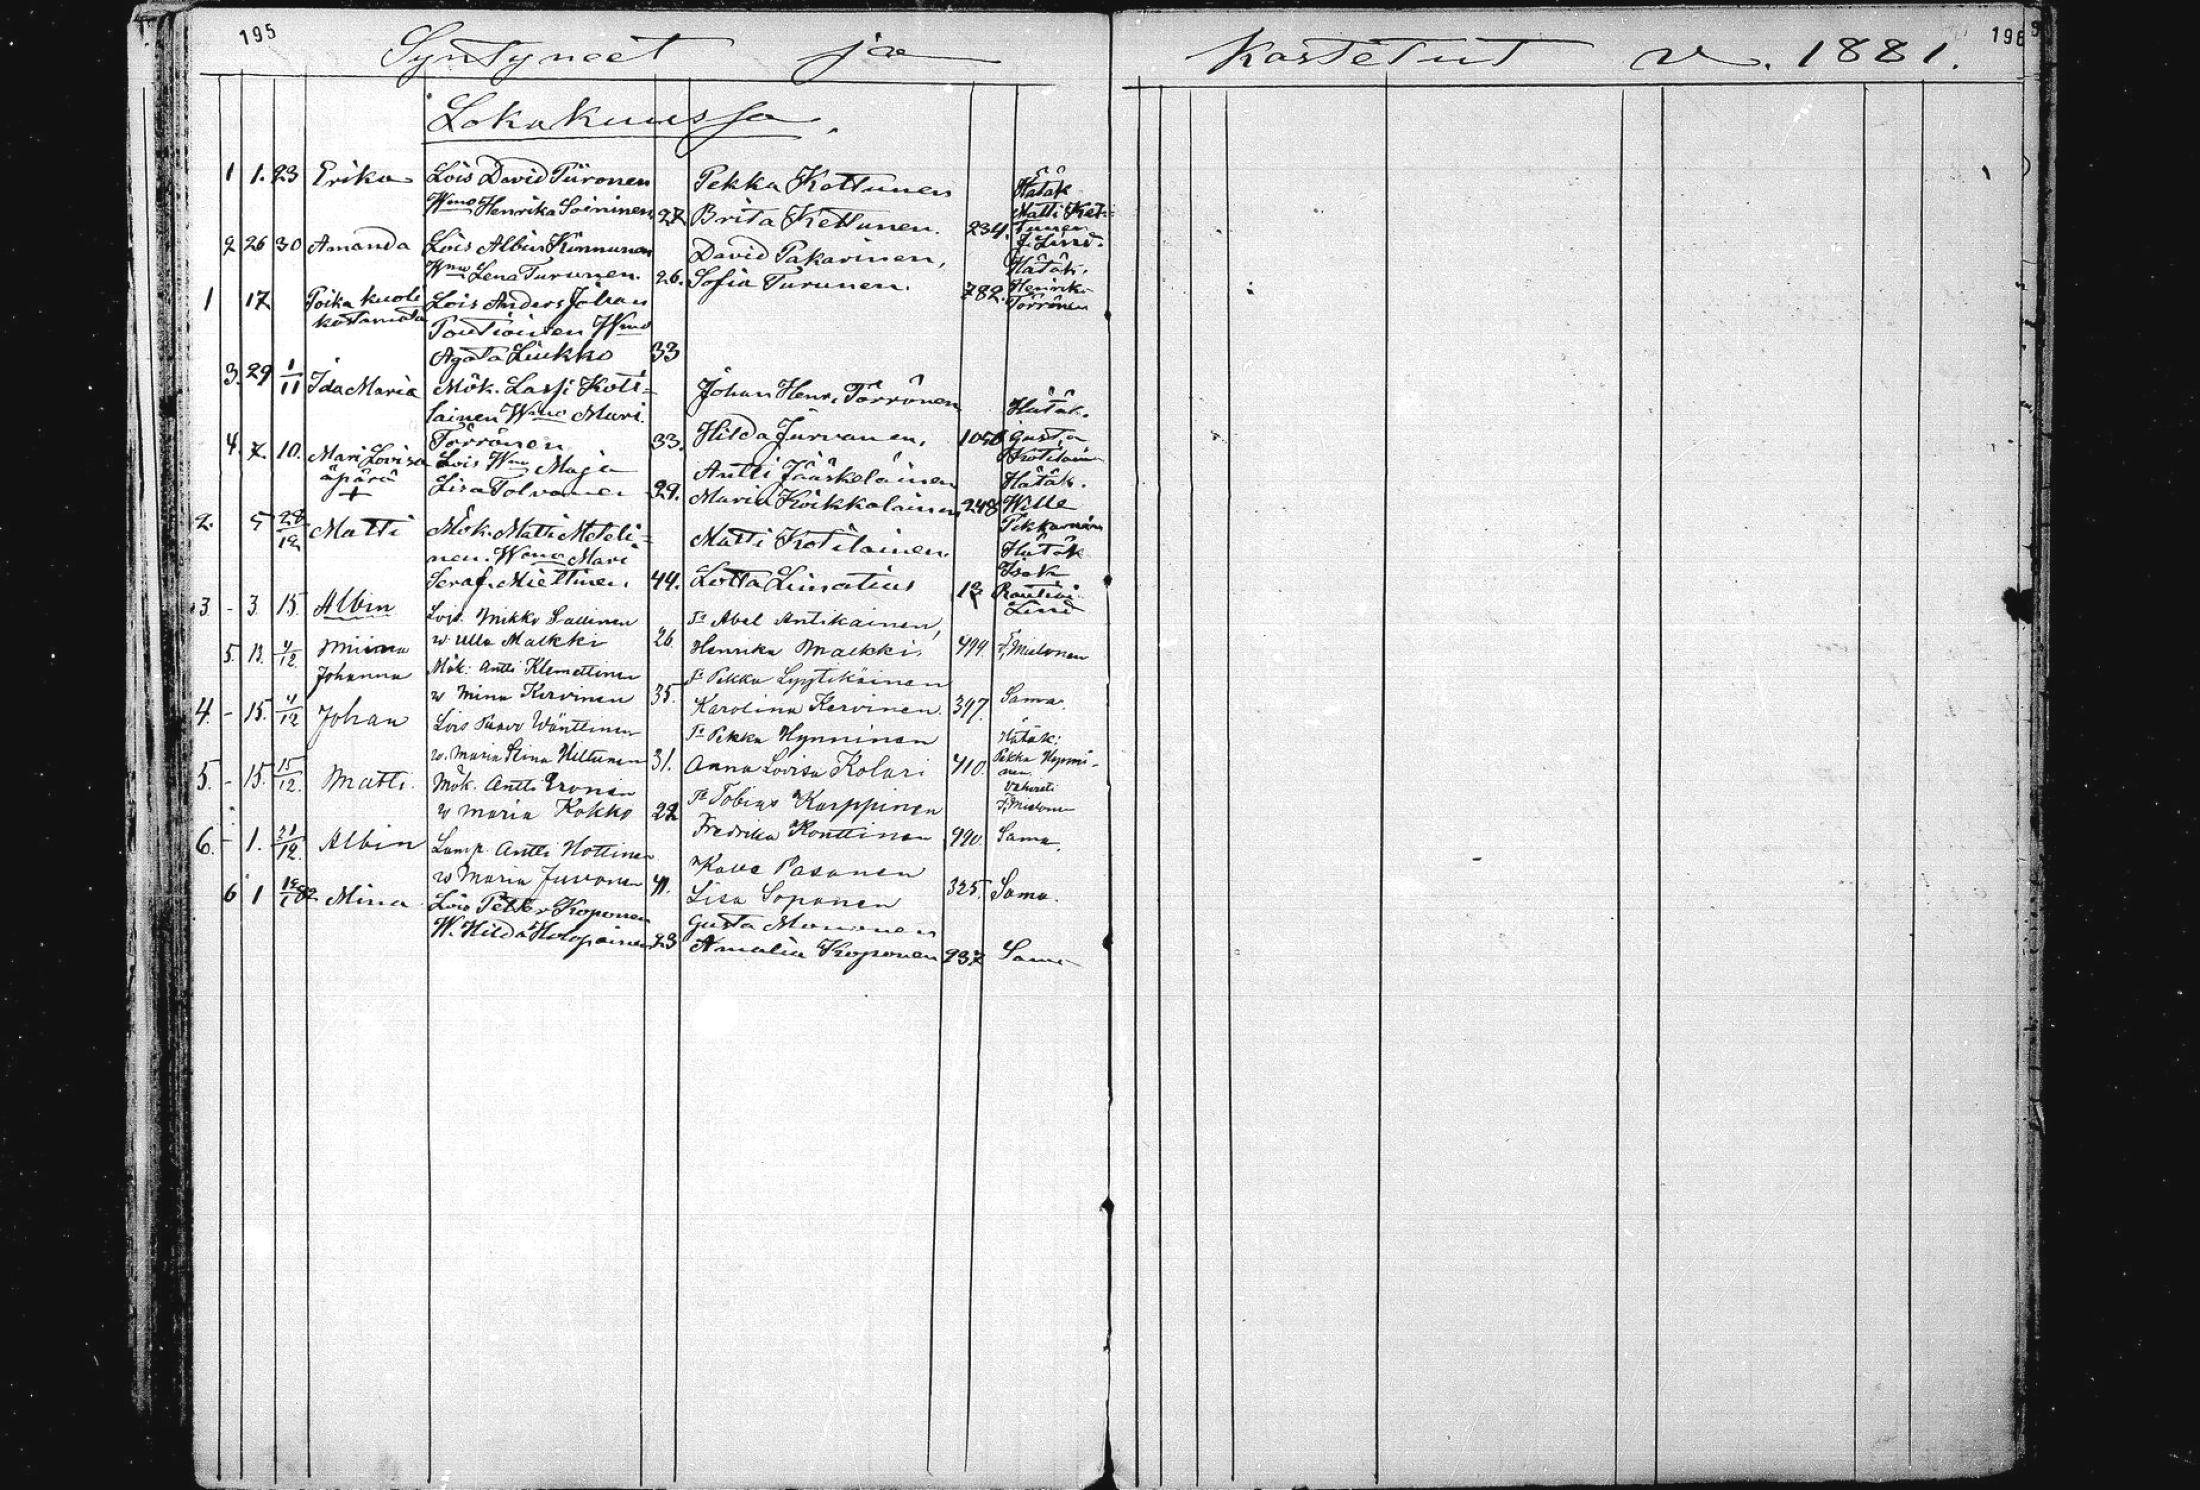 195
196
Syntyneet ja Kastetut v. 1881.
Lokakuussa.
1 1. 23 Erika Lois David Piironen Pekka Kettunen Hätäk
Wmo Henrika Soininen 27 Brita Kettunen. 234. Matti Ket-
tunen
2 26 30 Amanda Lois Albin Kinnunen David Pakarinen, F. Lind.
Wmo Lena Turunen. 26. Sofia Turunen. 782. Hätäk.
Henrika
Törrönen
1 17 Poika kuoli Lois Anders Johan
kastamata Pautiainen Wmo
Agata Liukko 33
3. 29 1/11 Ida Maria Mök. Lassi Koti- Johan Henr. Törrönen Hätäk.
lainen Wmo Mari
Törrönen 33. Hilda Jurvanen, Gusta
Kotilain
4. 7. 10. Mari Lovisa Lois Wmo Maja Antti Jääskeläinen Hätäk.
äpärä Lisa Tolvanen 29. Maria Koikkalainen 248 Wille
+ Pekkarinen
2. 5 28/12 Matti Mök. Matti Meteli- Matti Kotilainen. Hätäk
nen. Wmo Mari Isak
Seraf. Miettinen 44. Lotta Limatius 12 Rautiai
Lind
3 - 3. 15. Albin Lois. Mikko Sallinen Ta Abel Antikainen,
w. Ulla Malkki 26. Henrika Malkki. 499. F. Mielonen
5. 13. 4/12. Miina Mök. Antti Klemettinen Ta Pekka Lyytikäinen
Johanna w Mina Kervinen 35. Karolina Kervinen. 397. Sama.
4. - 15. 4/12 Johan Lois Paavo Wänttinen Ta Pekka Hynninen Hätäk:
w. Maria Stina Hiltunen 31. Anna Lovisa Kolari 410. Pekka Hynni-
nen.
5. - 15. 15/12. Matti. Mök. Antti Eronen Ta Tobias Karppinen Vahvisti
w Maria Kokko 22 Fredrika Konttinen 990. F. Mielonen
6. - 1. 21/12. Albin Lamp. Antti Hottinen Kalle Pasanen Sama.
w Maria Juvonen 41. Lisa Soponen 325. Sama.
6 1 Mina Lois Petter Koponen Gusta Mononen
W. Hilda Holopainen 23 Amalia Koponen 237 Sama